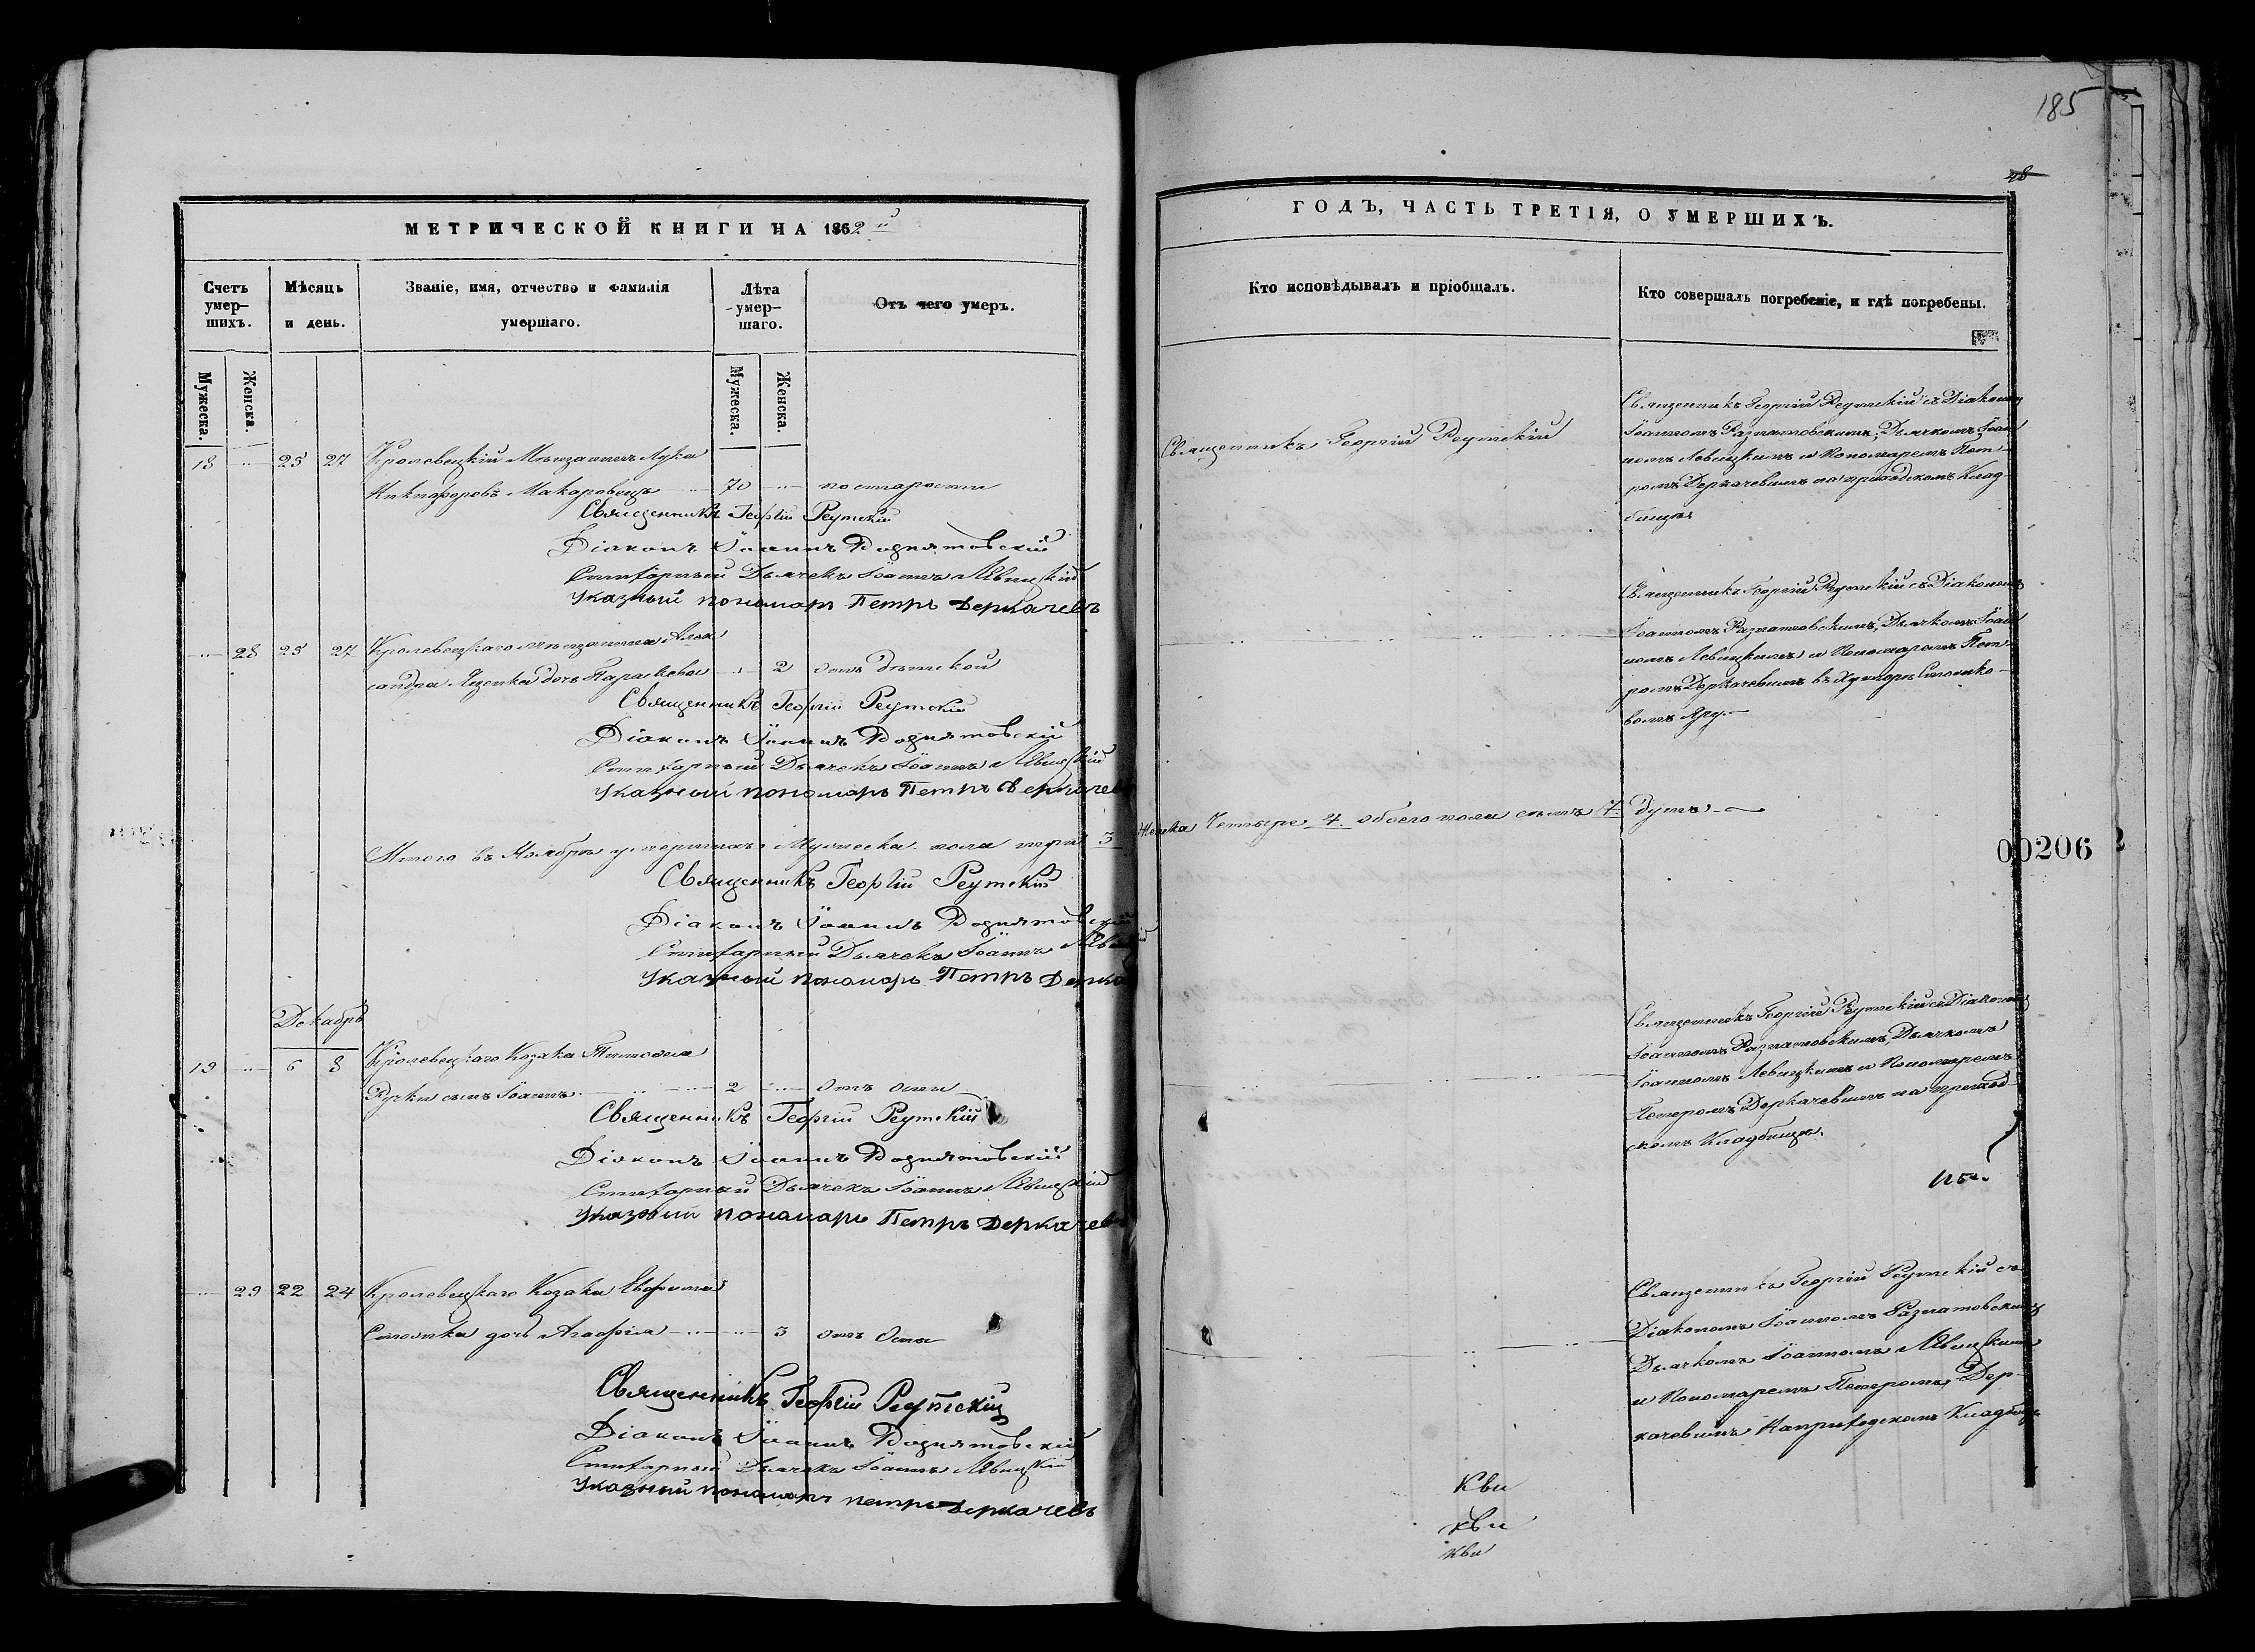 185
28
МЕТРИЧЕСКОЙ КНИГИ НА 1862 й
Счетъ умер-шихъ.
Мѣсяць и день.
Званіе, имя, отчество и фамилія умершаго.
Лѣта умер-шаго.
Отъ чего умеръ.
Мужеска.
Женска.
Мужеска.
Женска.
18 25 27 Кролевецкій Мѣщанинъ Лука
Никифоровъ Макаровецъ 70 по старости
Священникъ Георгій Реутскій
Діаконъ Іоаннъ
Стихарный Дьячекъ Іоаннъ Левицкій
Указный пономарь Петръ Деркачевъ
28 25 27 Кролевецкаго мѣщанина Алек
сандра дочь Параскева 2 отъ дѣтской
Священникъ Георгій Реутскій
Діаконъ Іоаннъ
Стихарный Дьячекъ Іоаннъ Левицкій
Указный пономарь Петръ Деркачевъ
Итого въ Ноябрѣ умершихъ Мужеска пола три 3
Священникъ Георгій Реутскій
Діаконъ Іоаннъ
Стихарный Дьячекъ Іоаннъ
Указный пономарь Петръ Дерка
Декабрь
19 6 8 Кролевецкаго Козака Тимофея
сынъ Іоаннъ 2 отъ оспы
Священникъ Георгій Реутскій
Діаконъ Іоаннъ
Стихарный Дьячекъ Іоаннъ Левицкій
Указный пономарь Петръ Деркачевъ
29 22 24 Кролевецкаго Козака Евфимія
дочь Агафія 3 отъ Оспы
Священникъ Георгій Реутскій
Діаконъ Іоаннъ
Стихарный Дьячекъ Іоаннъ Левицкій
Указный пономарь петръ Деркачевъ
ГОДЪ, ЧАСТЬ ТРЕТІЯ, О УМЕРШИХЪ.
Кто исповѣдывалъ и пріобщалъ.
Кто совершалъ погребеніе, и гдѣ погребены.
Священникъ Георгій Реутскій
Священникъ Георгій Реутскій съ Діакономъ
Іоанномъ Дьячкомъ Іоан
номъ Левицкимъ и Пономаремъ Пет-
ромъ Деркачевымъ на приходскомъ Клад-
бищѣ
Священникъ Георгій Реутскій съ Діакономъ
Іоанномъ Дьячкомъ Іоан
номъ Левицкимъ и Пономаремъ Пет-
ромъ Деркачевымъ въ Хуторѣ
вомъ Яру.
Женска Четыре 4. обоего пола семь 7. душъ.
00206
Священникъ Георгій Реутскій съ Діакономъ
Іоанномъ Дьячкомъ
Іоанномъ Левицкимъ и Пономаремъ
Петромъ Деркачевымъ на приход
скомъ Кладбищѣ.
Священникъ Георгій Реутскій съ
Діакономъ Іоанномъ
Дьячкомъ Іоанномъ Левицкимъ
и Пономаремъ Петромъ Дер-
качевымъ На приходскомъ Кладбищѣ
Кви
кви
кви